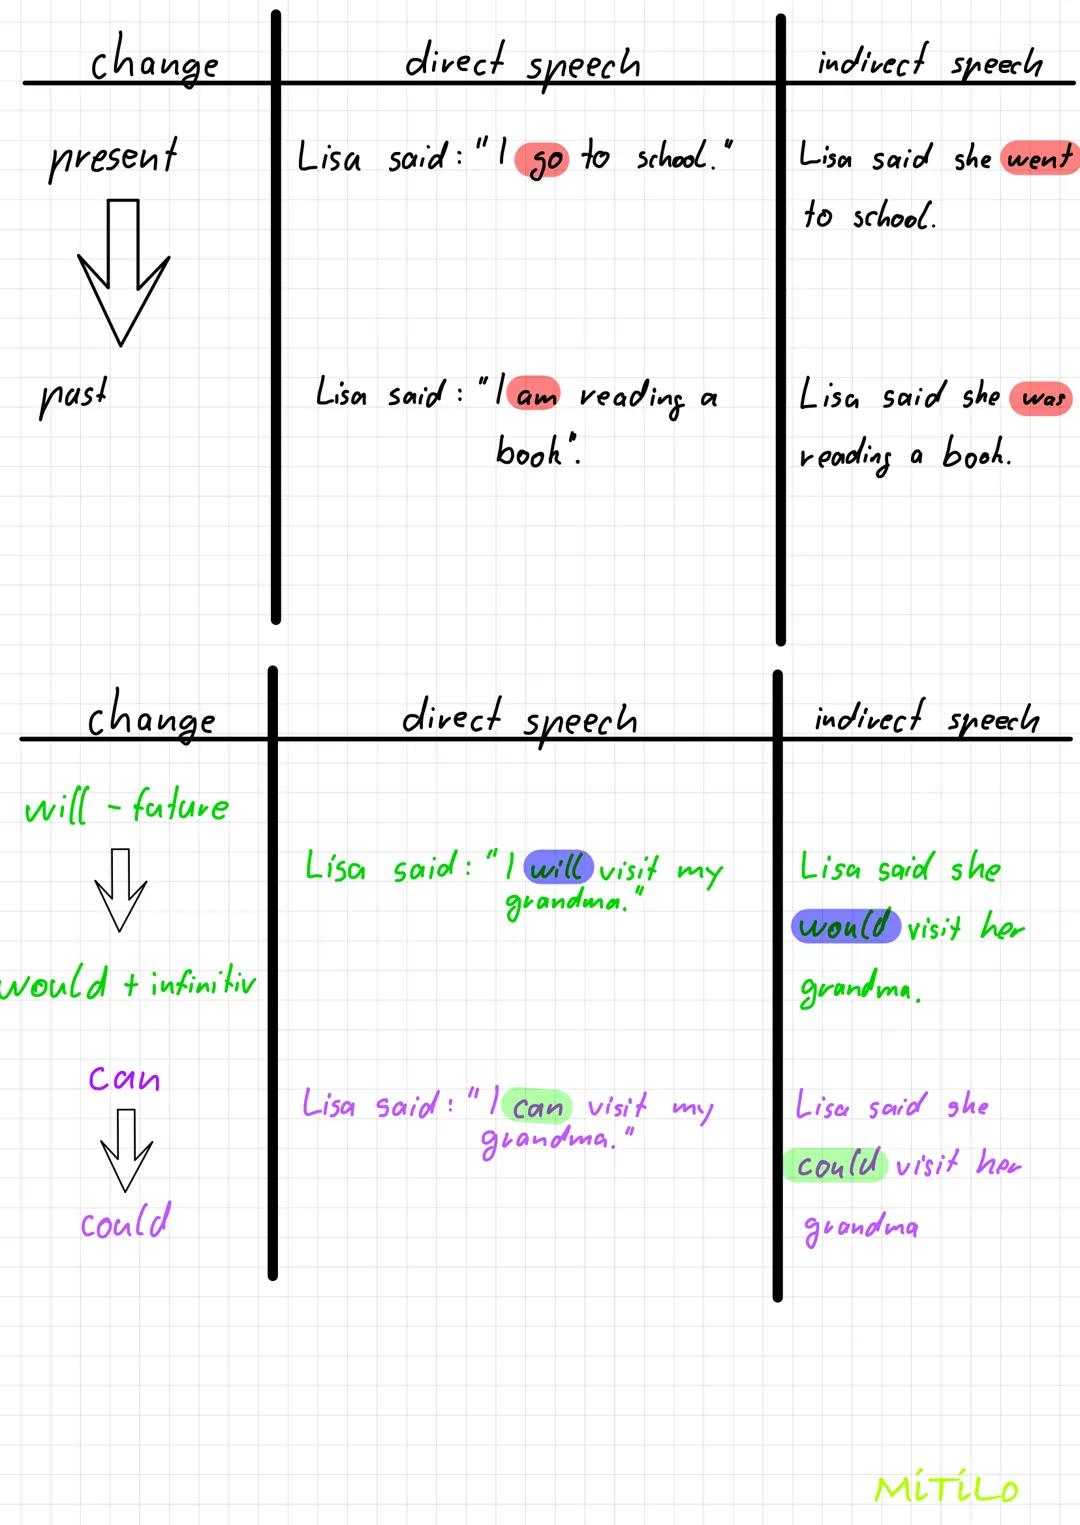 change direct speech indirect speech
present
Lisa said: "I go to school."
Lisa said she went
to school.
past
Lisa said: "I am reading a
book".
Lisa said she was
reading a book.
change direct speech indirect speech
will - future
would + infinitiv
Lisa said: "I will visit my
grandma."
Lisa said she
would visit her
grandma.
can
could
Lisa said: "I can visit my
grandma."
Lisa said she
could visit her
grandma
MiTiLo